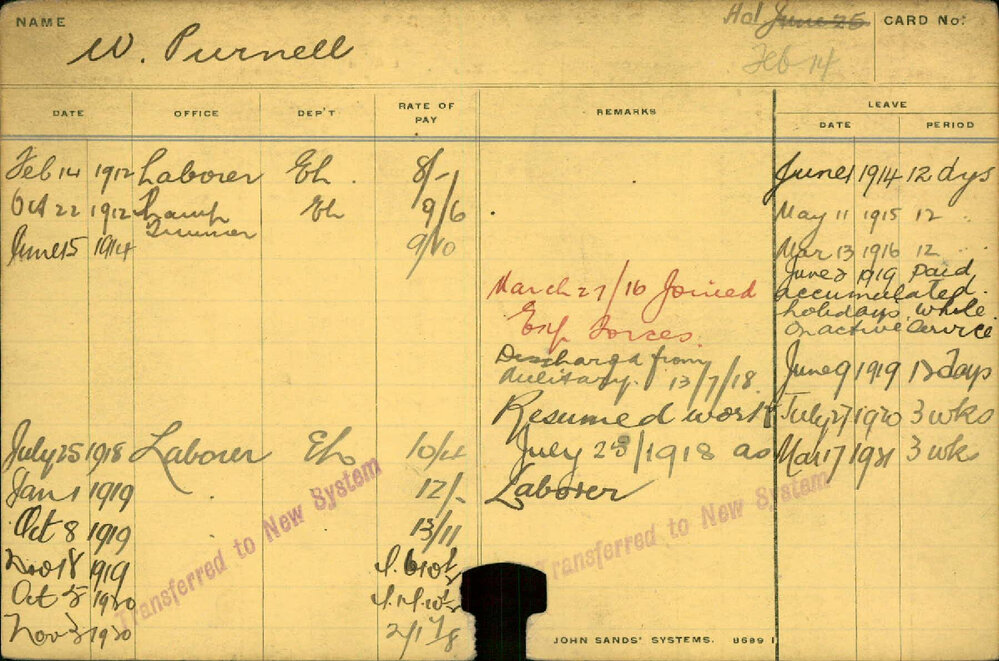 NAME
W. Purnell
Hol June 26
Feb 14
CARD No:
DATE OFFICE DEP'T RATE OF PAY REMARKS LEAVE
DATE PERIOD
Feb 14 1912 Laborer Eh. 8/-
Oct 22 1912 Lamp Trimmer Eh 9/6
June 15 1914 9/10
March 27/16 Joined
Exp Forces.
Discharged from
Military. 13/7/18.
Resumed work
July 25/1918 as
Laborer
July 25 1918 Laborer Eh 10/4
Jan 1 1919 12/-
Oct 8 1919 13/11
Nov 18 1919
Oct 5 1920
Nov 3 1920
June 1 1914 12 dys
May 11 1915 12
Mar 13 1916 12
June 2 1919 Paid
accumulated
holidays while
on active service
June 9 1919 12 days
July 27 1920 3 wks
Mar 17 1921 3 wks
Transferred to New System
Transferred to New System
JOHN SANDS' SYSTEMS. 8689